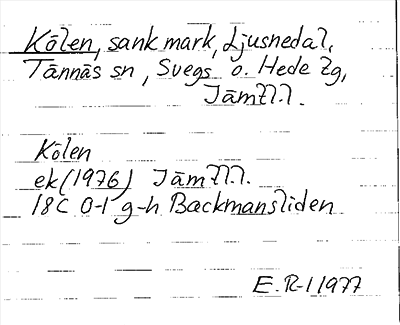 Kölen, sank mark, Ljusnedal,
Tännäs sn, Svegs o. Hede tg,
Jämtl.l.
Kölen
ek (1976) Jämtl.l.
18C 0-1 g-h Backmansliden
E. R-l 1977